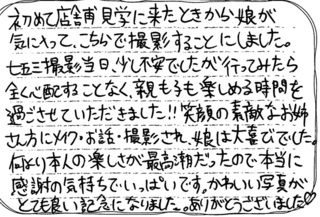 初めて店舗見学に来たときから娘が
気に入って、こちらで撮影することにしました。
七五三撮影当日、少し不安でしたが行ってみたら
全く心配することなく、親も子も楽しめる時間を
過ごさせていただきました!!笑顔の素敵なお姉
さん方にメイク・お話・撮影され、娘は大喜びでした。
何より本人の楽しさが最高潮だったので本当に
感謝の気持ちでいっぱいです。かわいい写真が
とても良い記念になりました。ありがとうございました♡